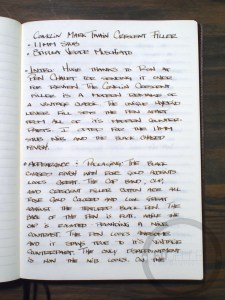 Conklin Mark Twain Crescent Filler
• 1.1mm Stub
• Stipula Verde Muschiato
• Intro: Huge thanks to Ron at
Pen Chalet for sending it over
for review. The Conklin Crescent
Filler is a modern remake of
a vintage classic. The unique
fill sets the pen apart
from all of its modern counter
parts. I opted for the 1.1mm
stub nib and the black chased
finish.
• Appearance & Packaging: The black
chased finish with rose gold accents
looks great. The cap band, clip,
and crescent filler button are all
rose gold colored and look great
against the black finish. The
end of the pen is flat, while the
cap is rounded providing a nice
contrast. The pen looks awesome
and it stays true to its vintage
counterpart. The only disappointment
is how the nib looks on the